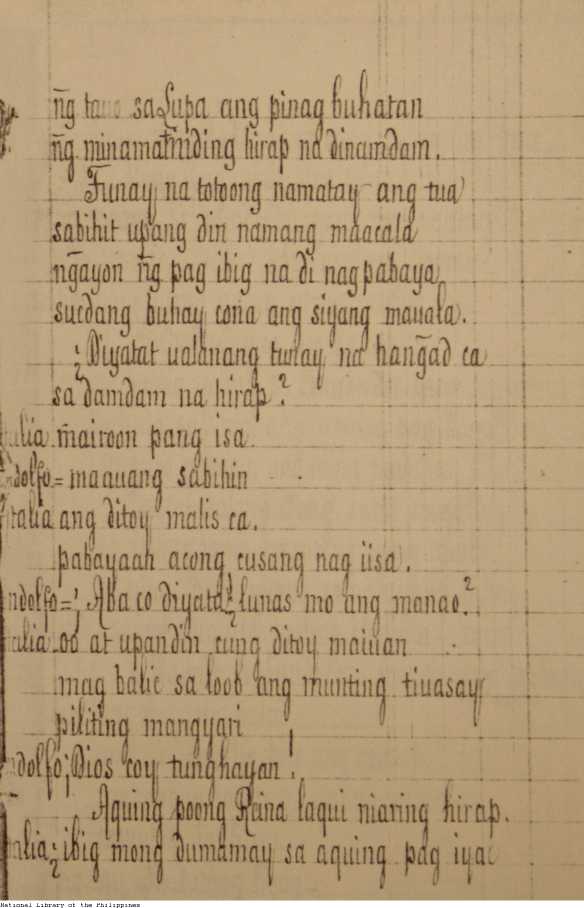 ñg sa Lupa ang pinag buhatan
ñg hirap na dinamdam.
Tunay na totoong namatay ang tua
sabihit upang din namang maacala
ngayon ñg pag ibig na di nagpabaya
sucdang buhay cona ang siyang mauala.
¿Diyatat ualanang tunay na hangad ca
sa damdam na hirap?
alia. mairoon pang isa
ndolfo = maauang sabihin
talia ang ditoy malis ca.
pabayaan acong cusang nag iisa.
ndolfo = ¡Aba co diyata! ¿lunas mo ang monao?
alia. oo at upandin cung ditoy maiuan
mag balic sa loob ang munting tiuasay
piliting mangyari
ndolfo ¡Dios coy tunghayan!
Aquing poong Reina laqui niaring hirap.
alia ¿ibig mong dumamay sa aquing pag iyac
National Library of the Philippines